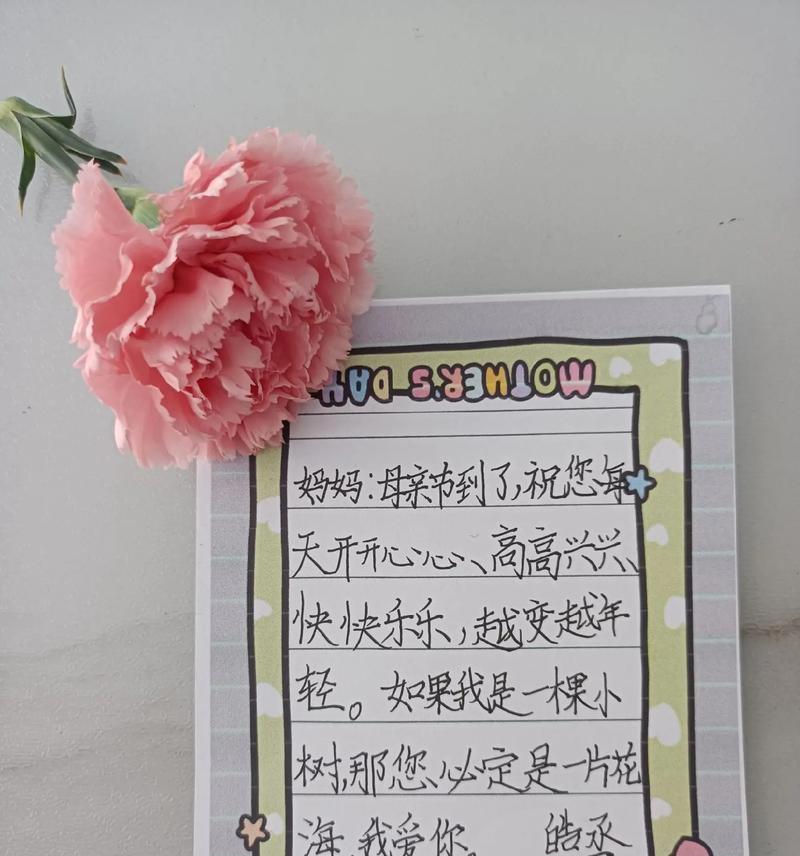 MOTHER'S DAY
妈妈:母亲节到了,祝您每
天开开心心、高高兴兴、
快快乐乐,越变越年
轻。如果我是一棵小
树,那您必定是一片花
海,我爱你。 皓丞